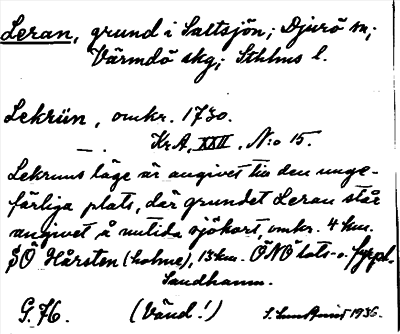 Leran, grund i Saltsjön; Djurö sn;
Värmdö skg; Sthlms l.
Lekrün, omkr. 1730.
—. Kr.A, XXII, N:o 15.
Lekruns läge är angivet till den unge-
färliga plats, där grundet Leran står
angivet å nutida sjökort, omkr. 4 km.
SÖ Hårsten (holme), 13 km. ÖNÖ lots- o. fyrpl.
Sandhamn.
G. 76. (Vänd!) 1936.